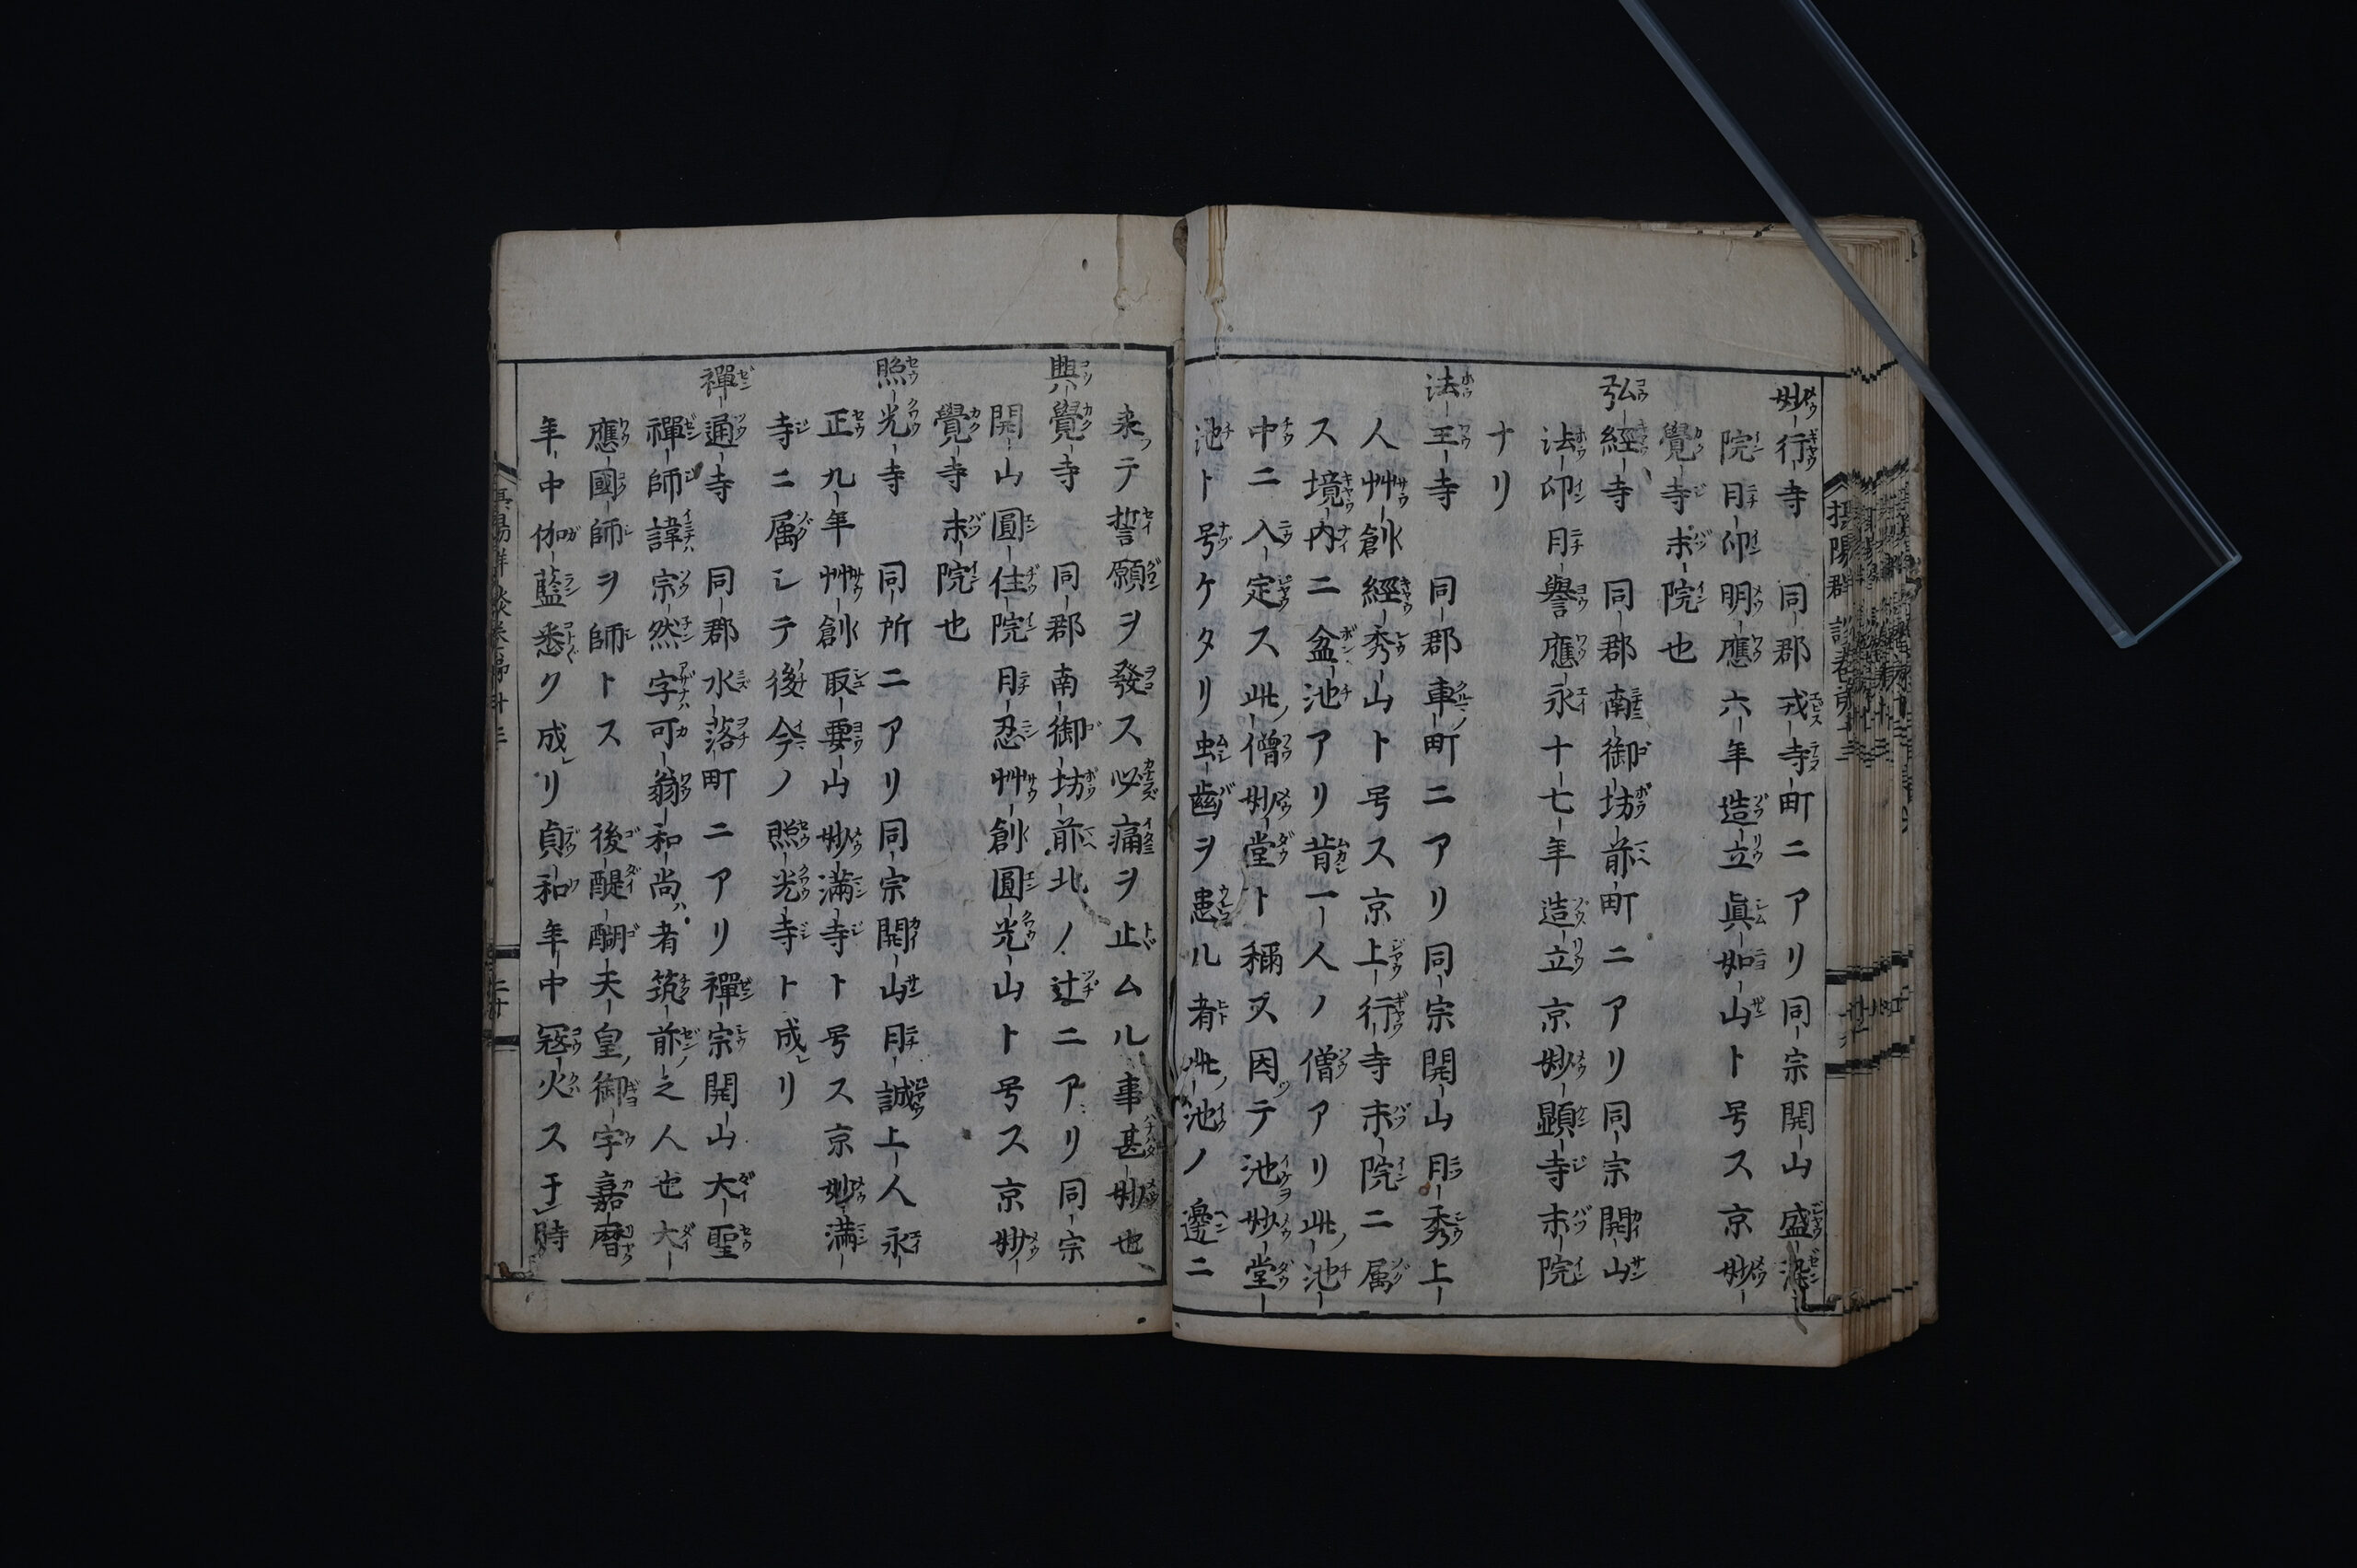 妙行寺　同郡戎寺町ニアリ同宗開山盛染
院日印明應六年造立眞如山ト号ス京妙
覺寺末院也
弘經寺　同郡南御坊前町ニアリ同宗開山
法印日譽應永十七年造立京妙顕寺末院
ナリ
法王寺　同郡車町ニアリ同宗開山日秀上
人艸創經秀山ト号ス京上行寺末院ニ属
ス境内ニ盆池アリ昔一人ノ僧アリ此池
中ニ入定ス此僧妙堂ト稱ス因テ池ヲ妙堂
池ト号ケタリ虫歯ヲ患ル者此池ノ邊ニ
来テ誓願ヲ發ス必痛ヲ止ムル事甚妙也
興覺寺　同郡南御坊前北ノ辻ニアリ同宗
開山圓住院日忍艸創圓光山ト号ス京妙
覺寺末院也
照光寺　同所ニアリ同宗開山日誠上人永
正九年艸創取要山妙満寺ト号ス京妙満
寺ニ属シテ後今ノ照光寺ト成リ
禪通寺　同郡水落町ニアリ禪宗開山大聖
禪師諱宗然字可翁和尚ハ者筑前之人也大
應國師ヲ師トス　後醍醐天皇御宇嘉暦
年中伽藍悉ク成リ貞和年中冦火ス于時